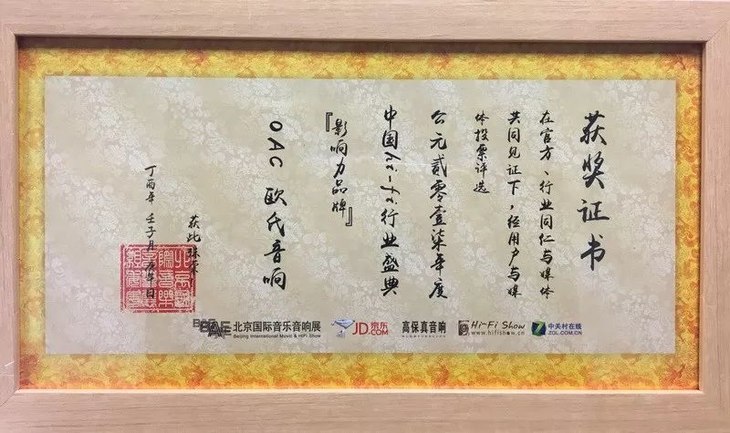 获奖证书
在官方、行业同仁与媒体
共同见证下，经用户与媒
体投票评选
公元贰零壹柒年度
中国hi-fi行业盛典
『影响力品牌』
OAC 欧氏音响
获此殊荣
丁酉年 壬子月 庚午日
北京国际音乐音响展
Beijing International Music & HiFi Show
JD京东
JD.COM
高保真音响
Hi-Fi Show
www.hifishow.cn
中关村在线
ZOL.COM.CN